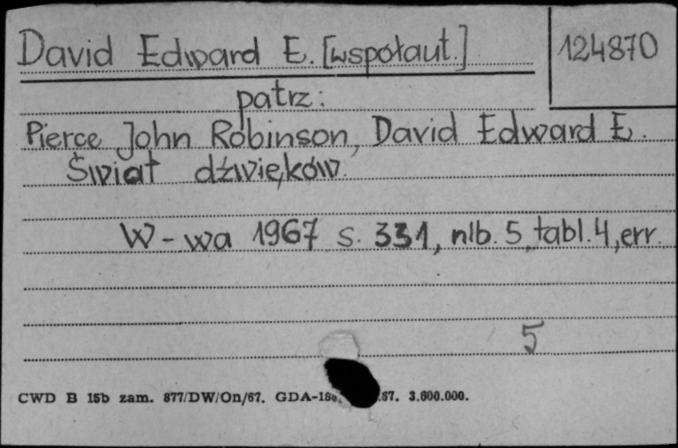 David Edward E. [współaut.]
124870
patrz:
Pierce John Robinson, David Edward E.
Świat dźwięków.
W-wa 1967 s. 331, nlb. 5, tabl. 4, err.
5
CWD B 15b zam. 877/DW/On/67. GDA-18 .67. 3.600.000.